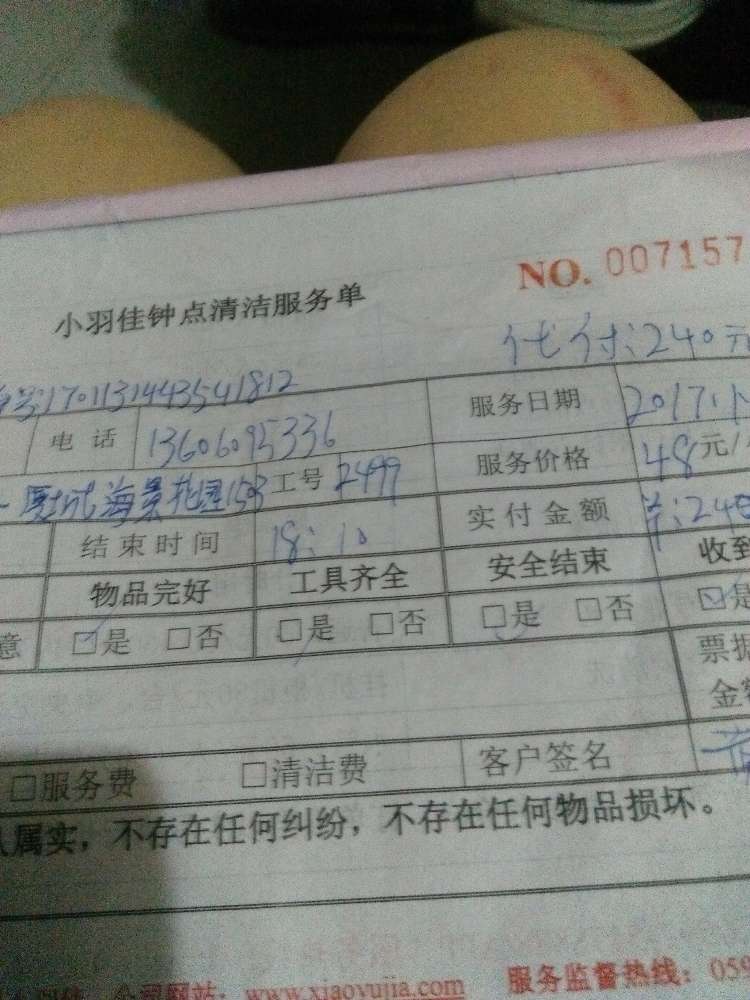 NO. 007157
小羽佳钟点清洁服务单
代付:240元
号:170113144354 1812
电话 13606095336 服务日期 2017.1.
海景花园 工号 2499 服务价格 48元/
结束时间 18:10 实付金额 ¥:240
物品完好 工具齐全 安全结束 收到
意 ☑是 □否 □是 □否 □是 □否 ☑是
票据
金额
□服务费 □清洁费 客户签名
属实，不存在任何纠纷，不存在任何物品损坏。
公司网站：www.xiaoyujia.com 服务监督热线：059